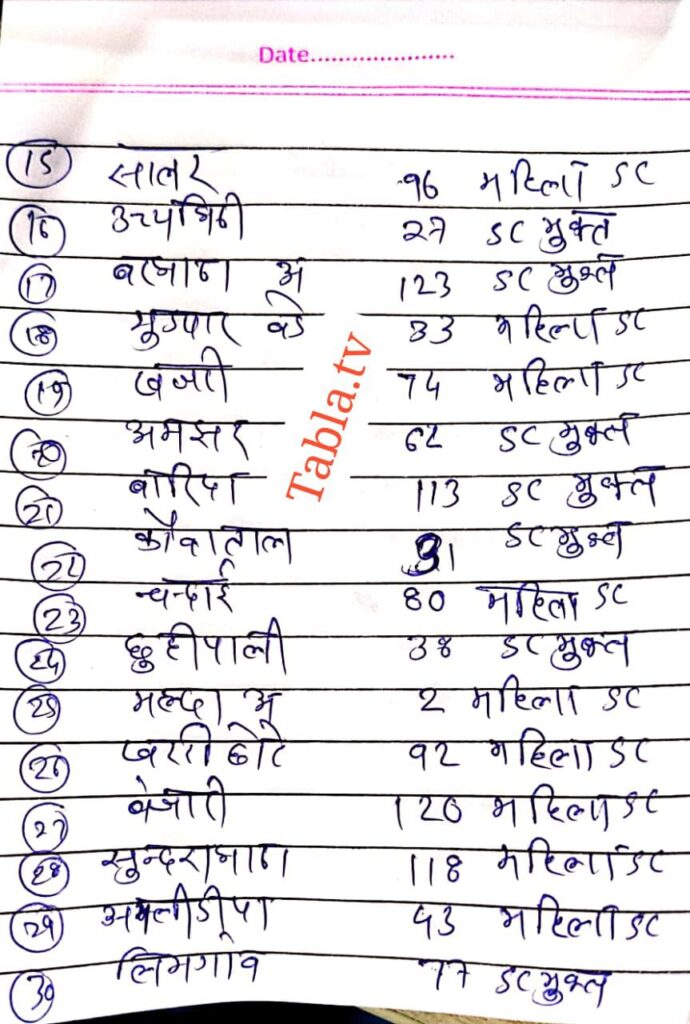 Date.....................
15 सालर 96 महिला SC
16 उच्चभिठी 27 SC मुक्त
17 बरभाठा अ 123 SC मुक्त
18 33 महिला SC
19 खजरी 74 महिला SC
20 अमझर 62 SC मुक्त
21 बोरिदा 113 SC मुक्त
22 कौवाताल 31 SC मुक्त
23 चन्दाई 80 महिला SC
24 छुहीपाली 38 SC मुक्त
25 मल्दा अ 2 महिला SC
26 खर्री छोटे 92 महिला SC
27 120 महिला SC
28 सुन्दराभाठा 118 महिला SC
29 अमलीडीपा 43 महिला SC
30 लिमगांव 77 SC मुक्त
Tabla.tv